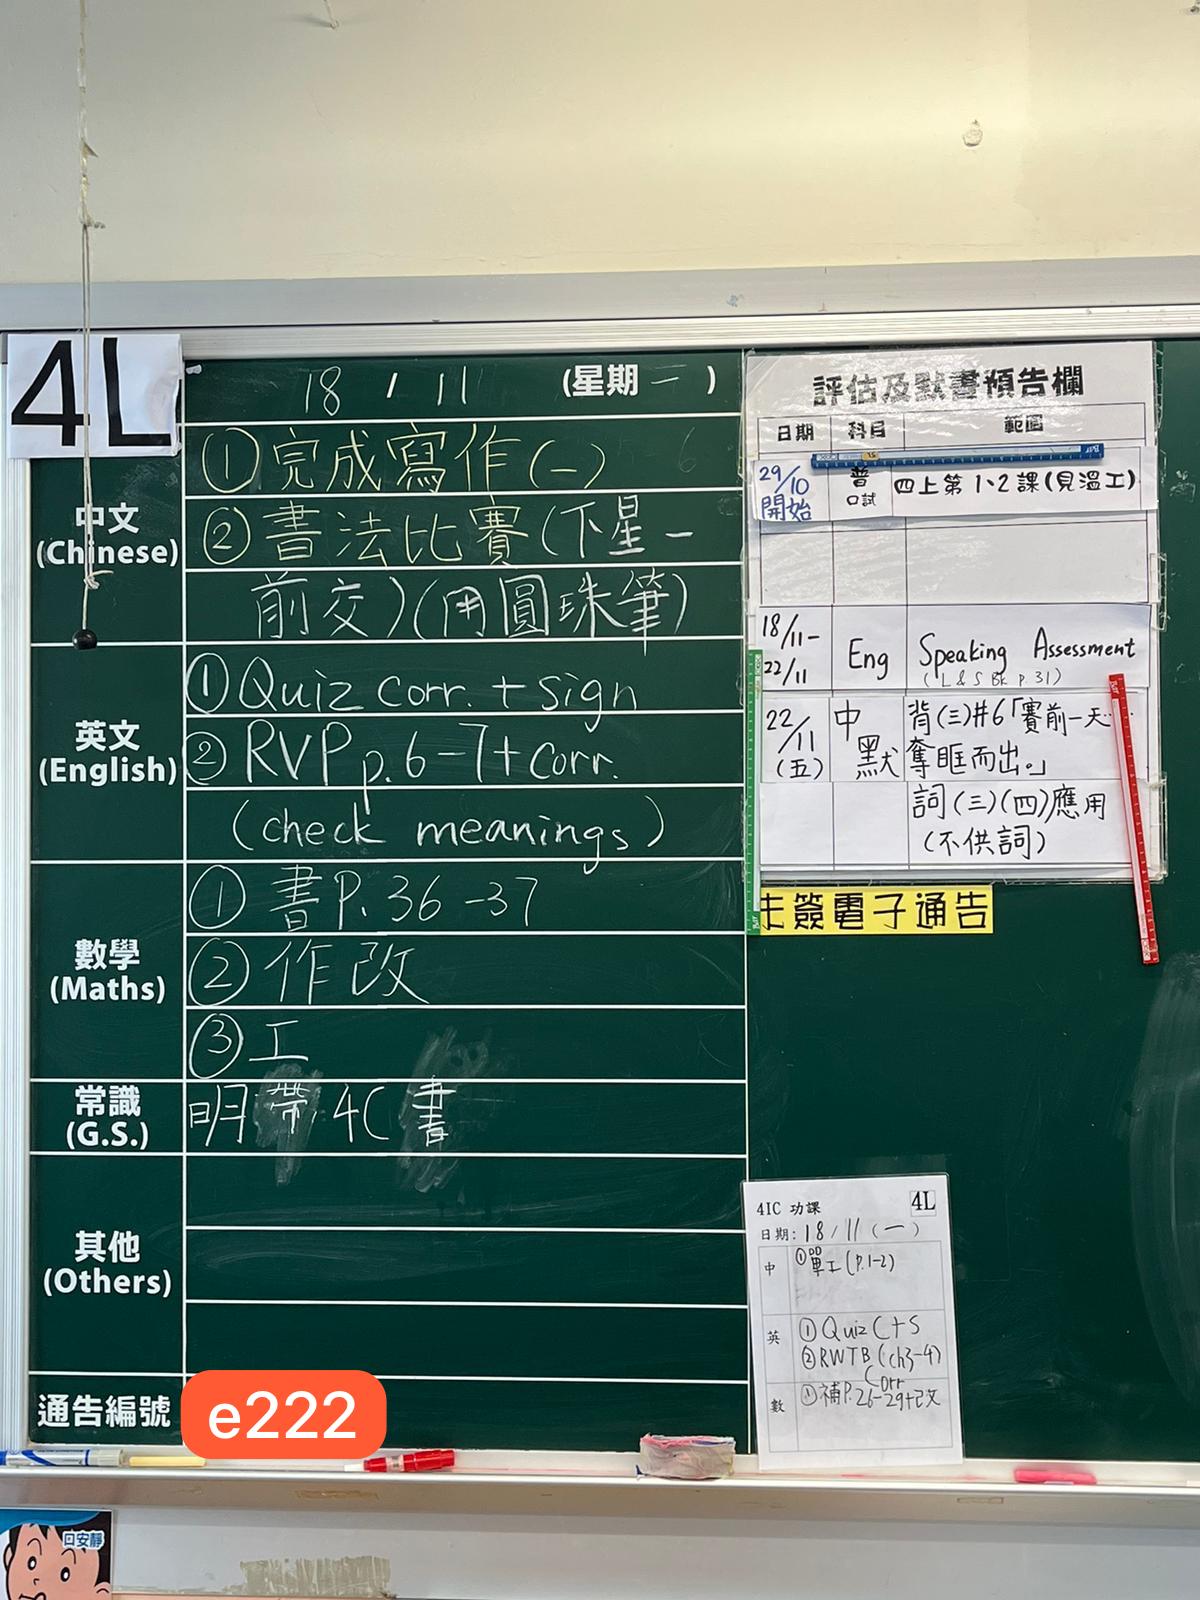 4L
18 / 11 (星期一)
中文
(Chinese)
①完成寫作(一)
②書法比賽(下星一
前交)(用圓珠筆)
英文
(English)
①Quiz corr. + sign
②RVP p.6-7+corr.
(check meanings)
數學
(Maths)
① 書P. 36-37
② 作改
③ 工
常識
(G.S.)
明帶4C書
其他
(Others)
通告編號
e222
評估及默書預告欄
日期 科目 範圍
29/10 開始 普 口試 四上第1、2課(見溫工)
18/11-22/11 Eng Speaking Assessment
(L & S Bk p.31)
22/11 (五) 中默 背(三)#6「賽前一天…
奪眶而出。」
詞(三)(四)應用
(不供詞)
未簽電子通告
4IC 功課 4L
日期: 18/11 (一)
中 ①單工(P.1-2)
英 ①Quiz C+S
②RWTB (ch3-4)
Corr
數 ①補P.26-29+改
安靜